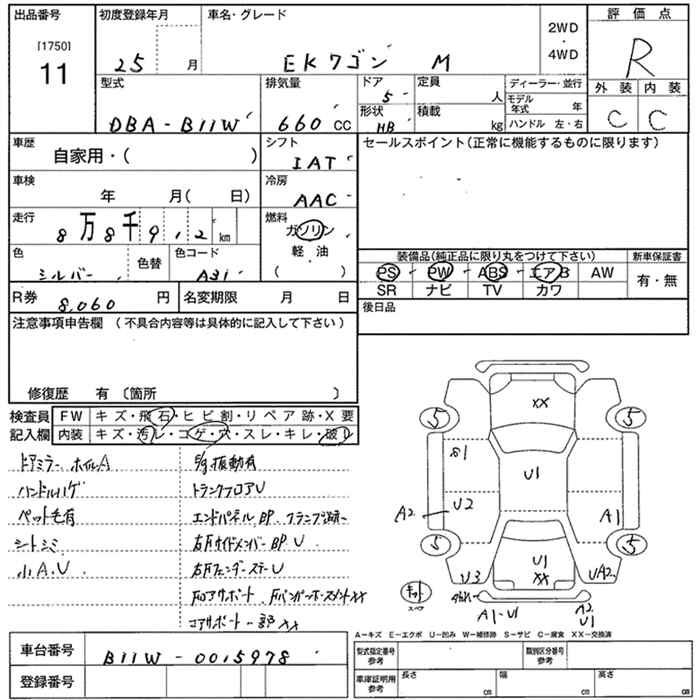 出品番号 初度登録年月 車名・グレード 評価点
[1750]
11
25 月 EKワゴン M
2WD
・
4WD
R
型式 排気量 ドア 定員 ディーラー・並行 外装 内装
DBA-B11W 660 CC 5 人 モデル年式 年 C C
形状 積載 ハンドル 左・右
HB kg
車歴 シフト セールスポイント(正常に機能するものに限ります)
自家用・( ) IAT
車検 冷房
年 月( 日) AAC
走行 燃料
8万8千9.2 km ガソリン
軽・油
( )
色 色替 色コード 装備品(純正品に限り丸をつけて下さい) 新車保証書
シルバー A31 PS PW ABS エアB AW 有・無
SR ナビ TV カワ
R券 8,060 円 名変期限 月 日 後日品
注意事項申告欄 (不具合内容等は具体的に記入して下さい)
修復歴 有〔箇所 〕
検査員 FW キズ・飛石・ヒビ割・リペア跡・X要
記入欄 内装 キズ・汚レ・コゲ・穴・スレ・キレ・破レ
ドアミラー ホイルA E/g振動有
ハンドルハゲ トランクフロアU
ペット毛有 エンドパネルBP
シートシミ 右Rサイドメンバー BP U
小A.U 右Rフェンダーステー U
Rコアサポート Rバンパーホースメント XX
コアサポート一部XX
XX
5 5
S1 U1
U2 A2 A1
5 5
U3 U1 XX UA2
キット
スペア
A1-U1 A2 U1
A-キズ E-エクボ U-凹み W-補修跡 S-サビ C-腐食 XX-交換済
車台番号 B11W-0015978
登録番号
型式指定番号 参考 類別区分番号 参考
車庫証明用 参考 長さ cm 幅 cm 高さ cm